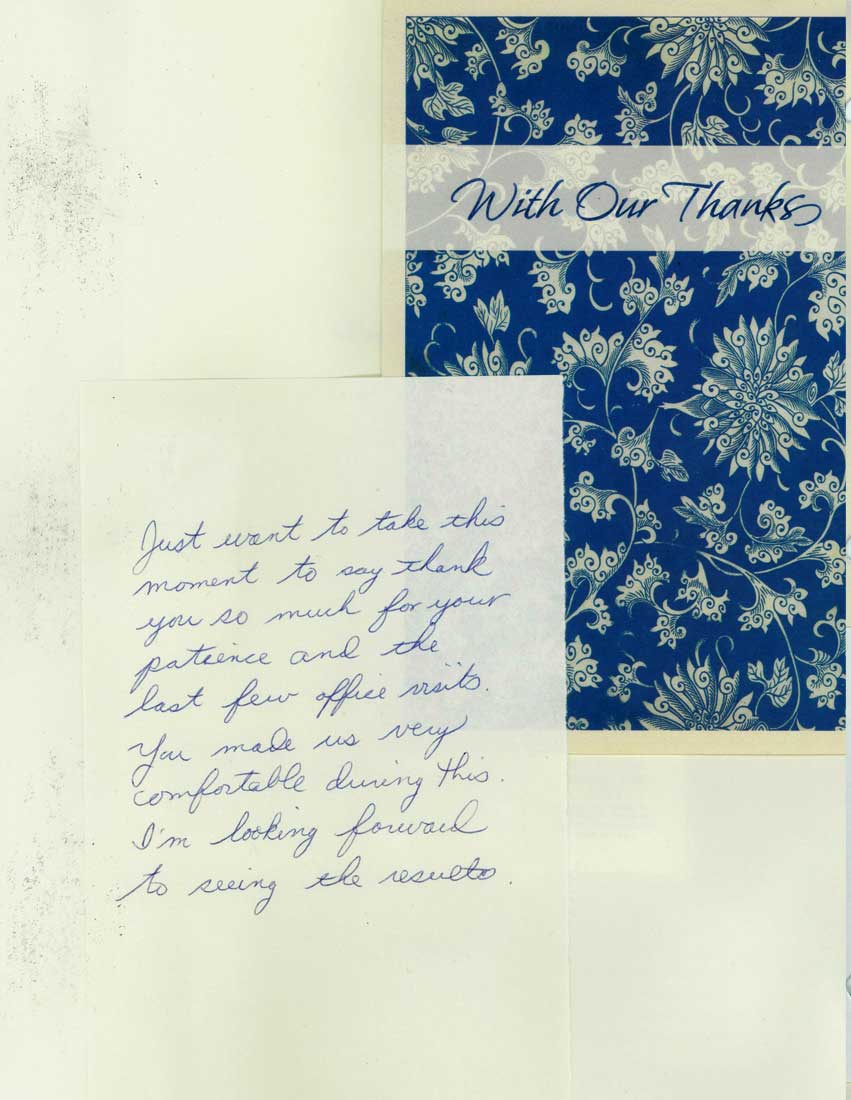 With Our Thanks
Just want to take this
moment to say thank
you so much for your
patience and the
last few office visits.
You made us very
comfortable during this.
I'm looking forward
to seeing the results.